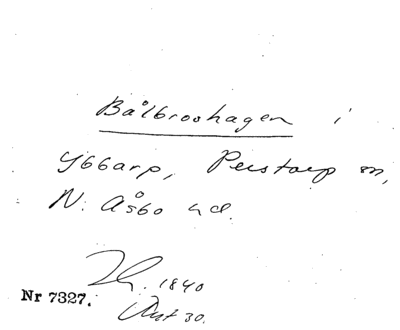 Bålbroshagen i
Ybbarp, Perstorp sn,
N. Åsbo hd.
1840
Nr 7327.
30.